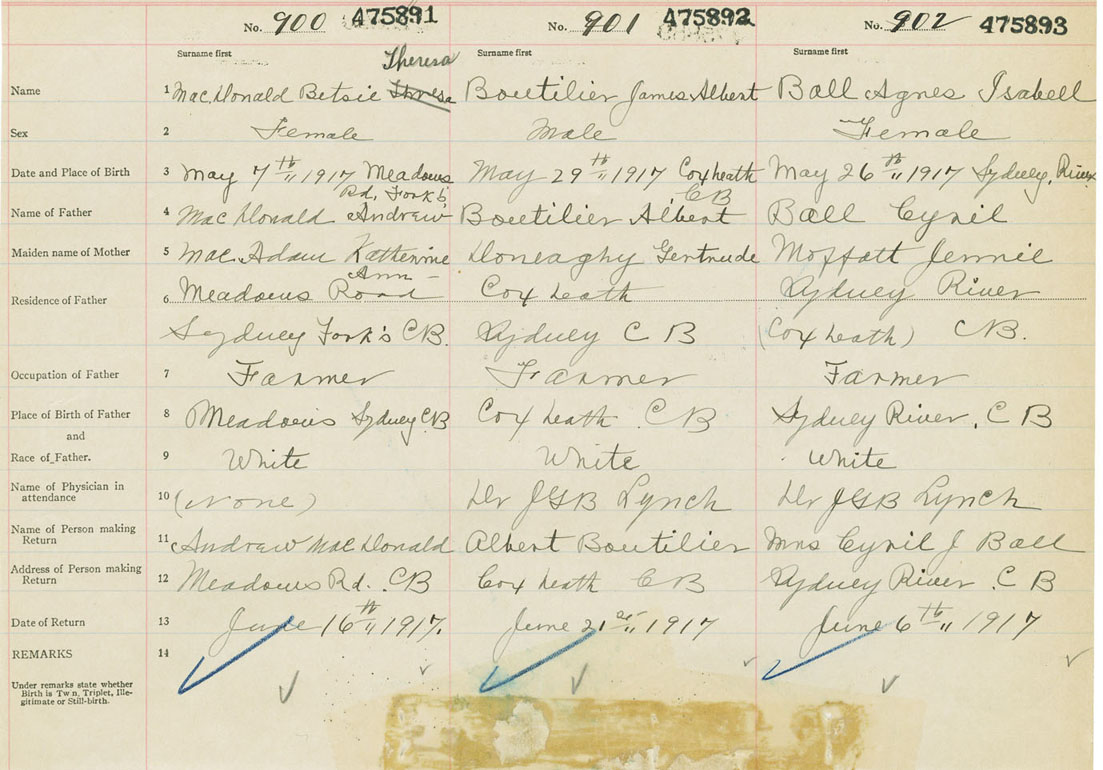 No. 900 475891 No. 901 475892 No. 902 475893
Surname first Surname first Surname first
Theresa
Name 1 MacDonald Betsie Thresa Boutilier James Albert Ball Agnes Isabell
Sex 2 Female Male Female
Date and Place of Birth 3 May 7th 1917 Meadows May 29th 1917 Coxheath May 26th 1917 Sydney, River
Rd, Fork's CB
Name of Father 4 MacDonald Andrew Boutilier Albert Ball Cyril
Maiden name of Mother 5 MacAdam Katherine Doneaghy Gertrude Moffatt Jennie
Ann
Residence of Father 6 Meadows Road Cox heath Sydney River
Sydney Fork's CB. Sydney C B (Cox heath) CB.
Occupation of Father 7 Farmer Farmer Farmer
Place of Birth of Father 8 Meadows Sydney CB Cox heath CB Sydney River, C B
and
Race of Father. 9 White White White
Name of Physician in
attendance 10 (None) Dr JGB Lynch Dr JGB Lynch
Name of Person making
Return 11 Andrew MacDonald Albert Boutilier Mrs Cyril J Ball
Address of Person making
Return 12 Meadows Rd. CB Cox heath CB Sydney River. C B
Date of Return 13 June 16th 1917. June 21st 1917 June 6th 1917
REMARKS 14
Under remarks state whether
Birth is Twin, Triplet, Ille-
gitimate or Still-birth.